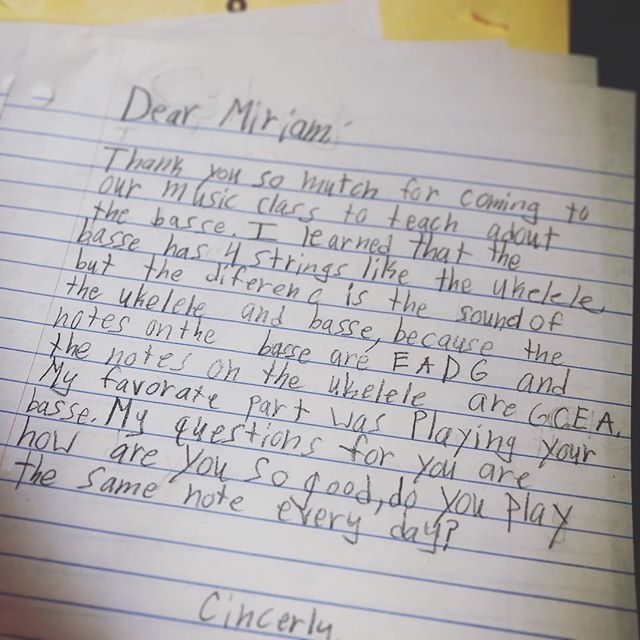 Dear Mirjam
Thank you so mutch for coming to
our music class to teach adout
the basse. I learned that the
basse has 4 strings like the ukelele,
but the diferenc is the sound of
the ukelele and basse, because the
notes on the basse are EADG and
the notes on the ukelele are GCEA.
My favorate part was Playing your
basse. My questions for you are
how are you so good, do you play
the same note every day?
Cincerly